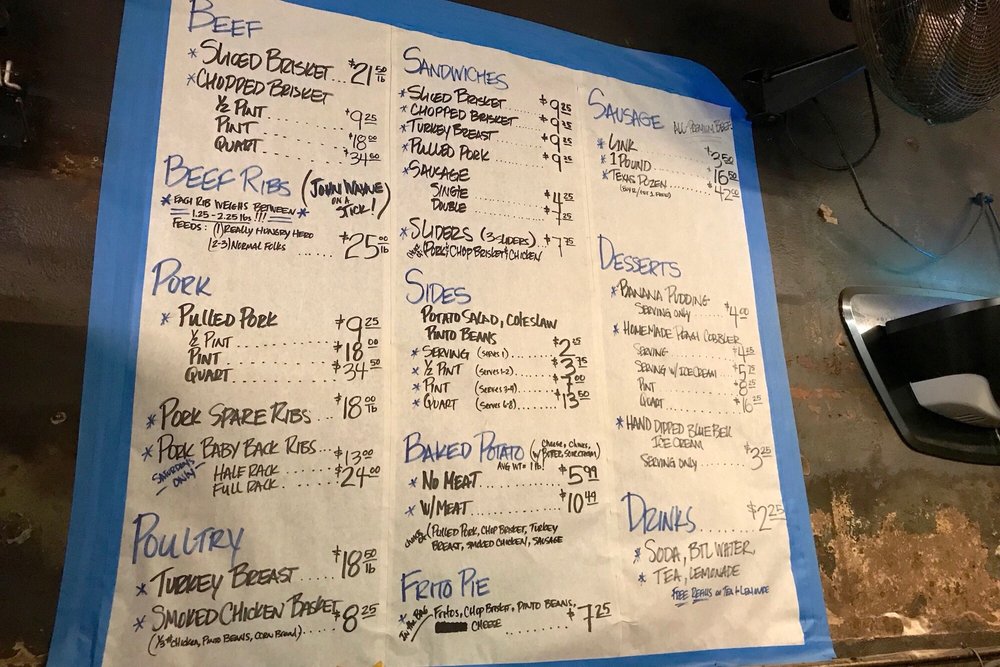 BEEF
* SLICED BRISKET... $21 50 lb
* CHOPPED BRISKET
1/2 PINT ........ $9 25
PINT ........ $18 00
QUART ........ $34 50
BEEF RIBS (JOHN WAYNE ON A STICK!)
* EACH RIB WEIGHS BETWEEN *
1.25 - 2.25 lbs !!!
FEEDS: (1) REALLY HUNGRY HERO
(2-3) NORMAL FOLKS ..... $25 00 lb
PORK
* PULLED PORK
1/2 PINT ........ $9 25
PINT ........ $18 00
QUART ........ $34 50
* PORK SPARE RIBS .. $18 00 lb
* PORK BABY BACK RIBS...
SATURDAYS ONLY
HALF RACK .... $13 00
FULL RACK .... $24 00
POULTRY
* TURKEY BREAST ..... $18 50 lb
* SMOKED CHICKEN BASKET $8 25
(CHICKEN, PINTO BEANS, CORN BREAD)
SANDWICHES
* SLICED BRISKET ... $9 25
* CHOPPED BRISKET ... $9 25
* TURKEY BREAST ..... $9 25
* PULLED PORK ..... $9 25
* SAUSAGE
SINGLE ........ $4 25
DOUBLE ........ $7 25
* SLIDERS (3-SLIDERS) .. $7 75
(PORK, CHOP BRISKET, CHICKEN
SIDES
POTATO SALAD, COLESLAW
PINTO BEANS
* SERVING (SERVES 1) ...... $2 25
* 1/2 PINT (SERVES 1-2) ...... $3 75
* PINT (SERVES 3-4) ......
* QUART (SERVES 6-8) ...... $13 50
BAKED POTATO (CHEESE, CHIVES, W/ BUTTER, SOUR CREAM)
AVG WT= 1 lb!
* NO MEAT .......... $5 99
* W/ MEAT .......... $10 49
(PULLED PORK, CHOP BRISKET, TURKEY
BREAST, SMOKED CHICKEN, SAUSAGE
FRITO PIE
* IN THE BAG FRITOS, CHOP BRISKET, PINTO BEANS,
CHEESE ........ $7 25
SAUSAGE ALL PREMIUM BEEF
* LINK ............ $3 50
* 1 POUND .......... $16 50
* TEXAS DOZEN ...... $42 00
DESSERTS
* BANANA PUDDING
SERVING ONLY ...... $4 00
* HOMEMADE PEACH COBBLER
SERVING .......... $4 25
SERVING W/ ICE CREAM ... $5 75
PINT ............ $8 25
QUART .......... $16 25
* HAND DIPPED BLUE BELL
ICE CREAM
SERVING ONLY ...... $3 25
DRINKS ....... $2 25
* SODA, BTL WATER,
* TEA, LEMONADE
FREE REFILLS ON TEA & LEMONADE